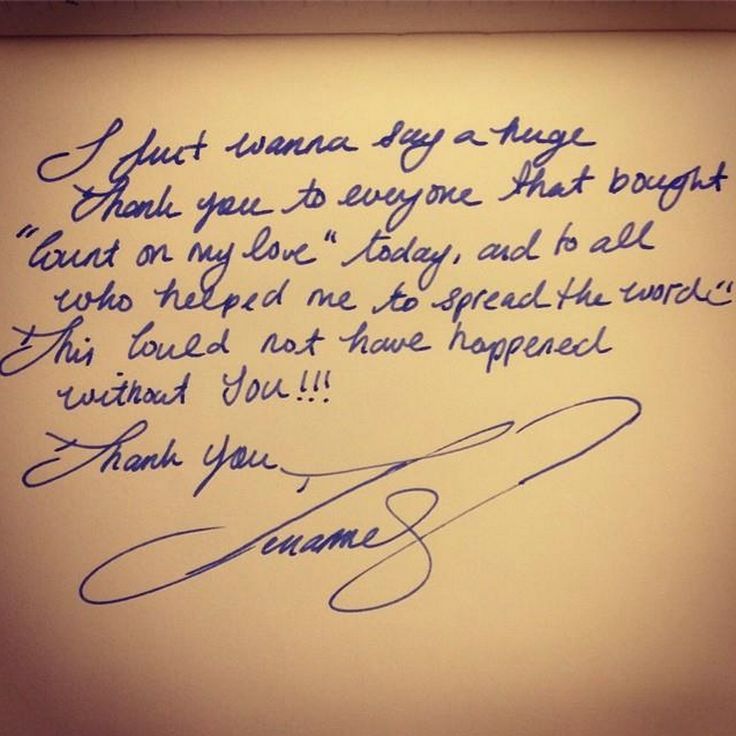 I just wanna say a huge
thank you to everyone that bought
"Count on my love" today, and to all
who helped me to spread the word :)
This could not have happened
without You!!!
Thank you,